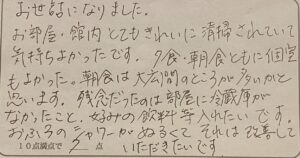 お世話になりました。
お部屋・館内とてもきれいに清掃されていて
気持ちよかったです。夕食・朝食ともに個室
もよかった。朝食は大広間のところが多いかと
思います。残念だったのは部屋に冷蔵庫が
なかったこと。好みの飲料等入れたいです。
おふろのシャワーがぬるくてそれは改善して
10点満点で 点 いただきたいです